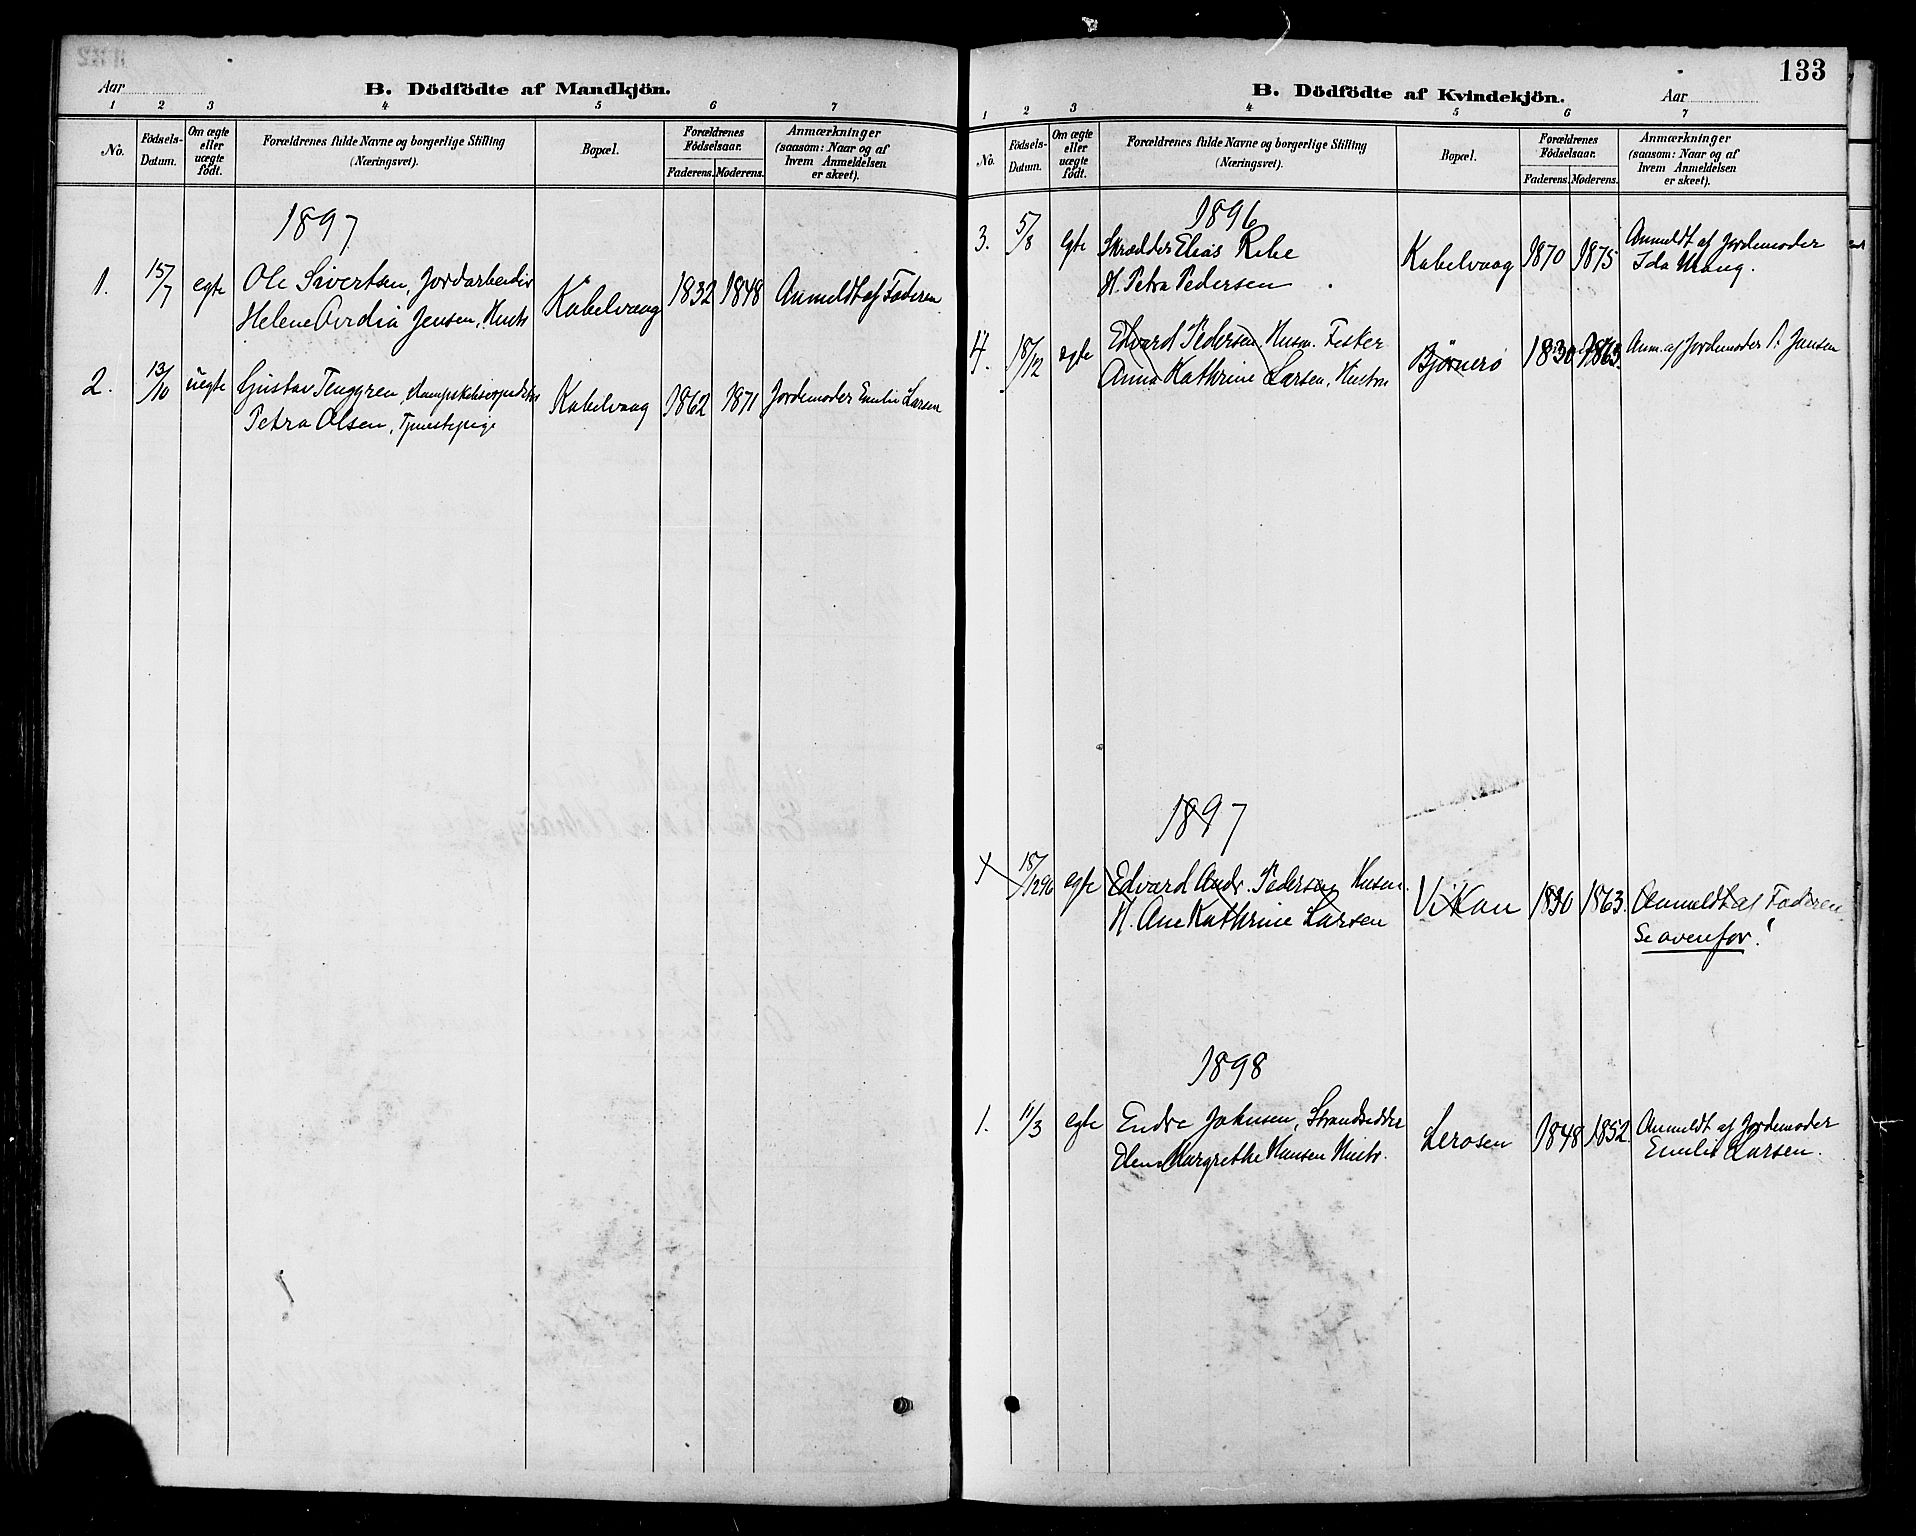 Aar
B. Dödfödte af Mandkjön.
1 2 3 4 5 6 7
No.
Födsels-Datum.
Om ægte eller uægte födt.
Forældrenes fulde Navne og borgerlige Stilling
(Næringsvei).
Bopæl.
Forældrenes Födselsaar.
Faderens. Moderens.
Anmærkninger
(saasom: Naar og af
hvem Anmeldelsen
er skeet).
1897
1. 15/7 egte Ole Sivertsen, Jordarbeider Kabelvaag 1832 1848 Anmeldt af Faderen
Helene Ovidia Jensen, Hustr
2. 13/10 uegte Gustav Tenggren, Kabelvaag 1862 1871 Jordemoder Emilie Larsen
Petra Olsen, Tjenestepige
133
B. Dödfödte af Kvindekjön.
Aar
1 2 3 4 5 6 7
No.
Födsels-Datum.
Om ægte eller uægte födt.
Forældrenes fulde Navne og borgerlige Stilling
(Næringsvei).
Bopæl.
Forældrenes Födselsaar.
Faderens. Moderens.
Anmærkninger
(saasom: Naar og af
hvem Anmeldelsen
er skeet).
1896
3. 5/8 egte Skrædder Elias Ribe Kabelvaag 1870 1875 Anmeldt af Jordemoder
H. Petra Pedersen Ida Wang.
4. 18/12 egte Edvard Pedersen, Husm. Fisker Bjørnerø 1830 1863. Anm. af Jordemoder P. Jansen
Anna Kathrine Larsen, Hustru
1897
1 15/12 96 egte Edvard Andr. Pedersen Husm. Vikan 1830 1863. Anmeldt af Faderen
H. Ane Kathrine Larsen
Se ovenfor!
1898
1. 11/3 egte Endre Johnsen, Strandsidder Lerosen 1848 1852. Anmeldt af Jordemoder
Elen Margrethe Hansen Hustr. Emilie Larsen.